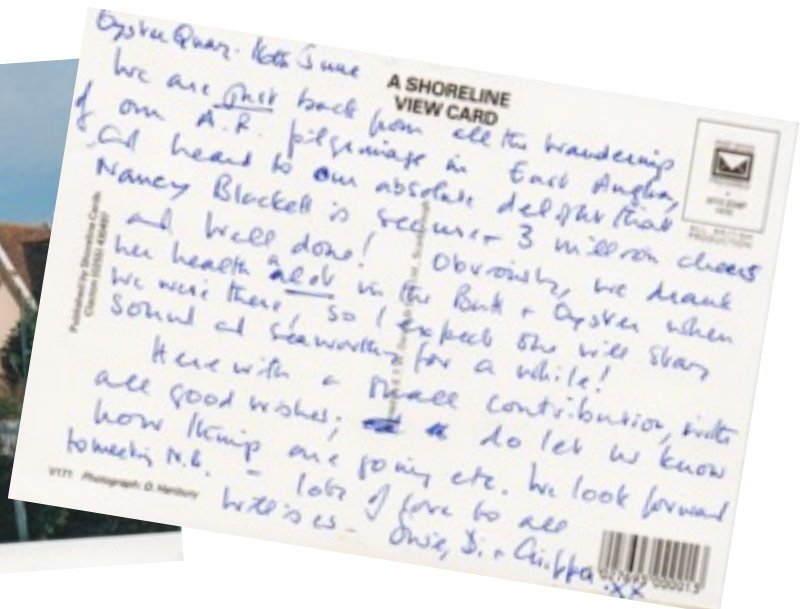 Oyster Quay. 16th June
A SHORELINE
VIEW CARD
We are just back from all the wanderings
of our A.R. pilgrimage in East Anglia,
and heard to our absolute delight that
Nancy Blackett is secure - 3 million cheers
and well done! Obviously, we drank
her health a lot in the Butt & Oyster when
we were there, so I expect she will stay
sound and seaworthy for a while!
Here with a small contribution, with
all good wishes; do let us know
how things are going etc. We look forward
to meeting N.B. - lots of love to all
Published by Shoreline Cards
V171 Photograph: D. Hanbury